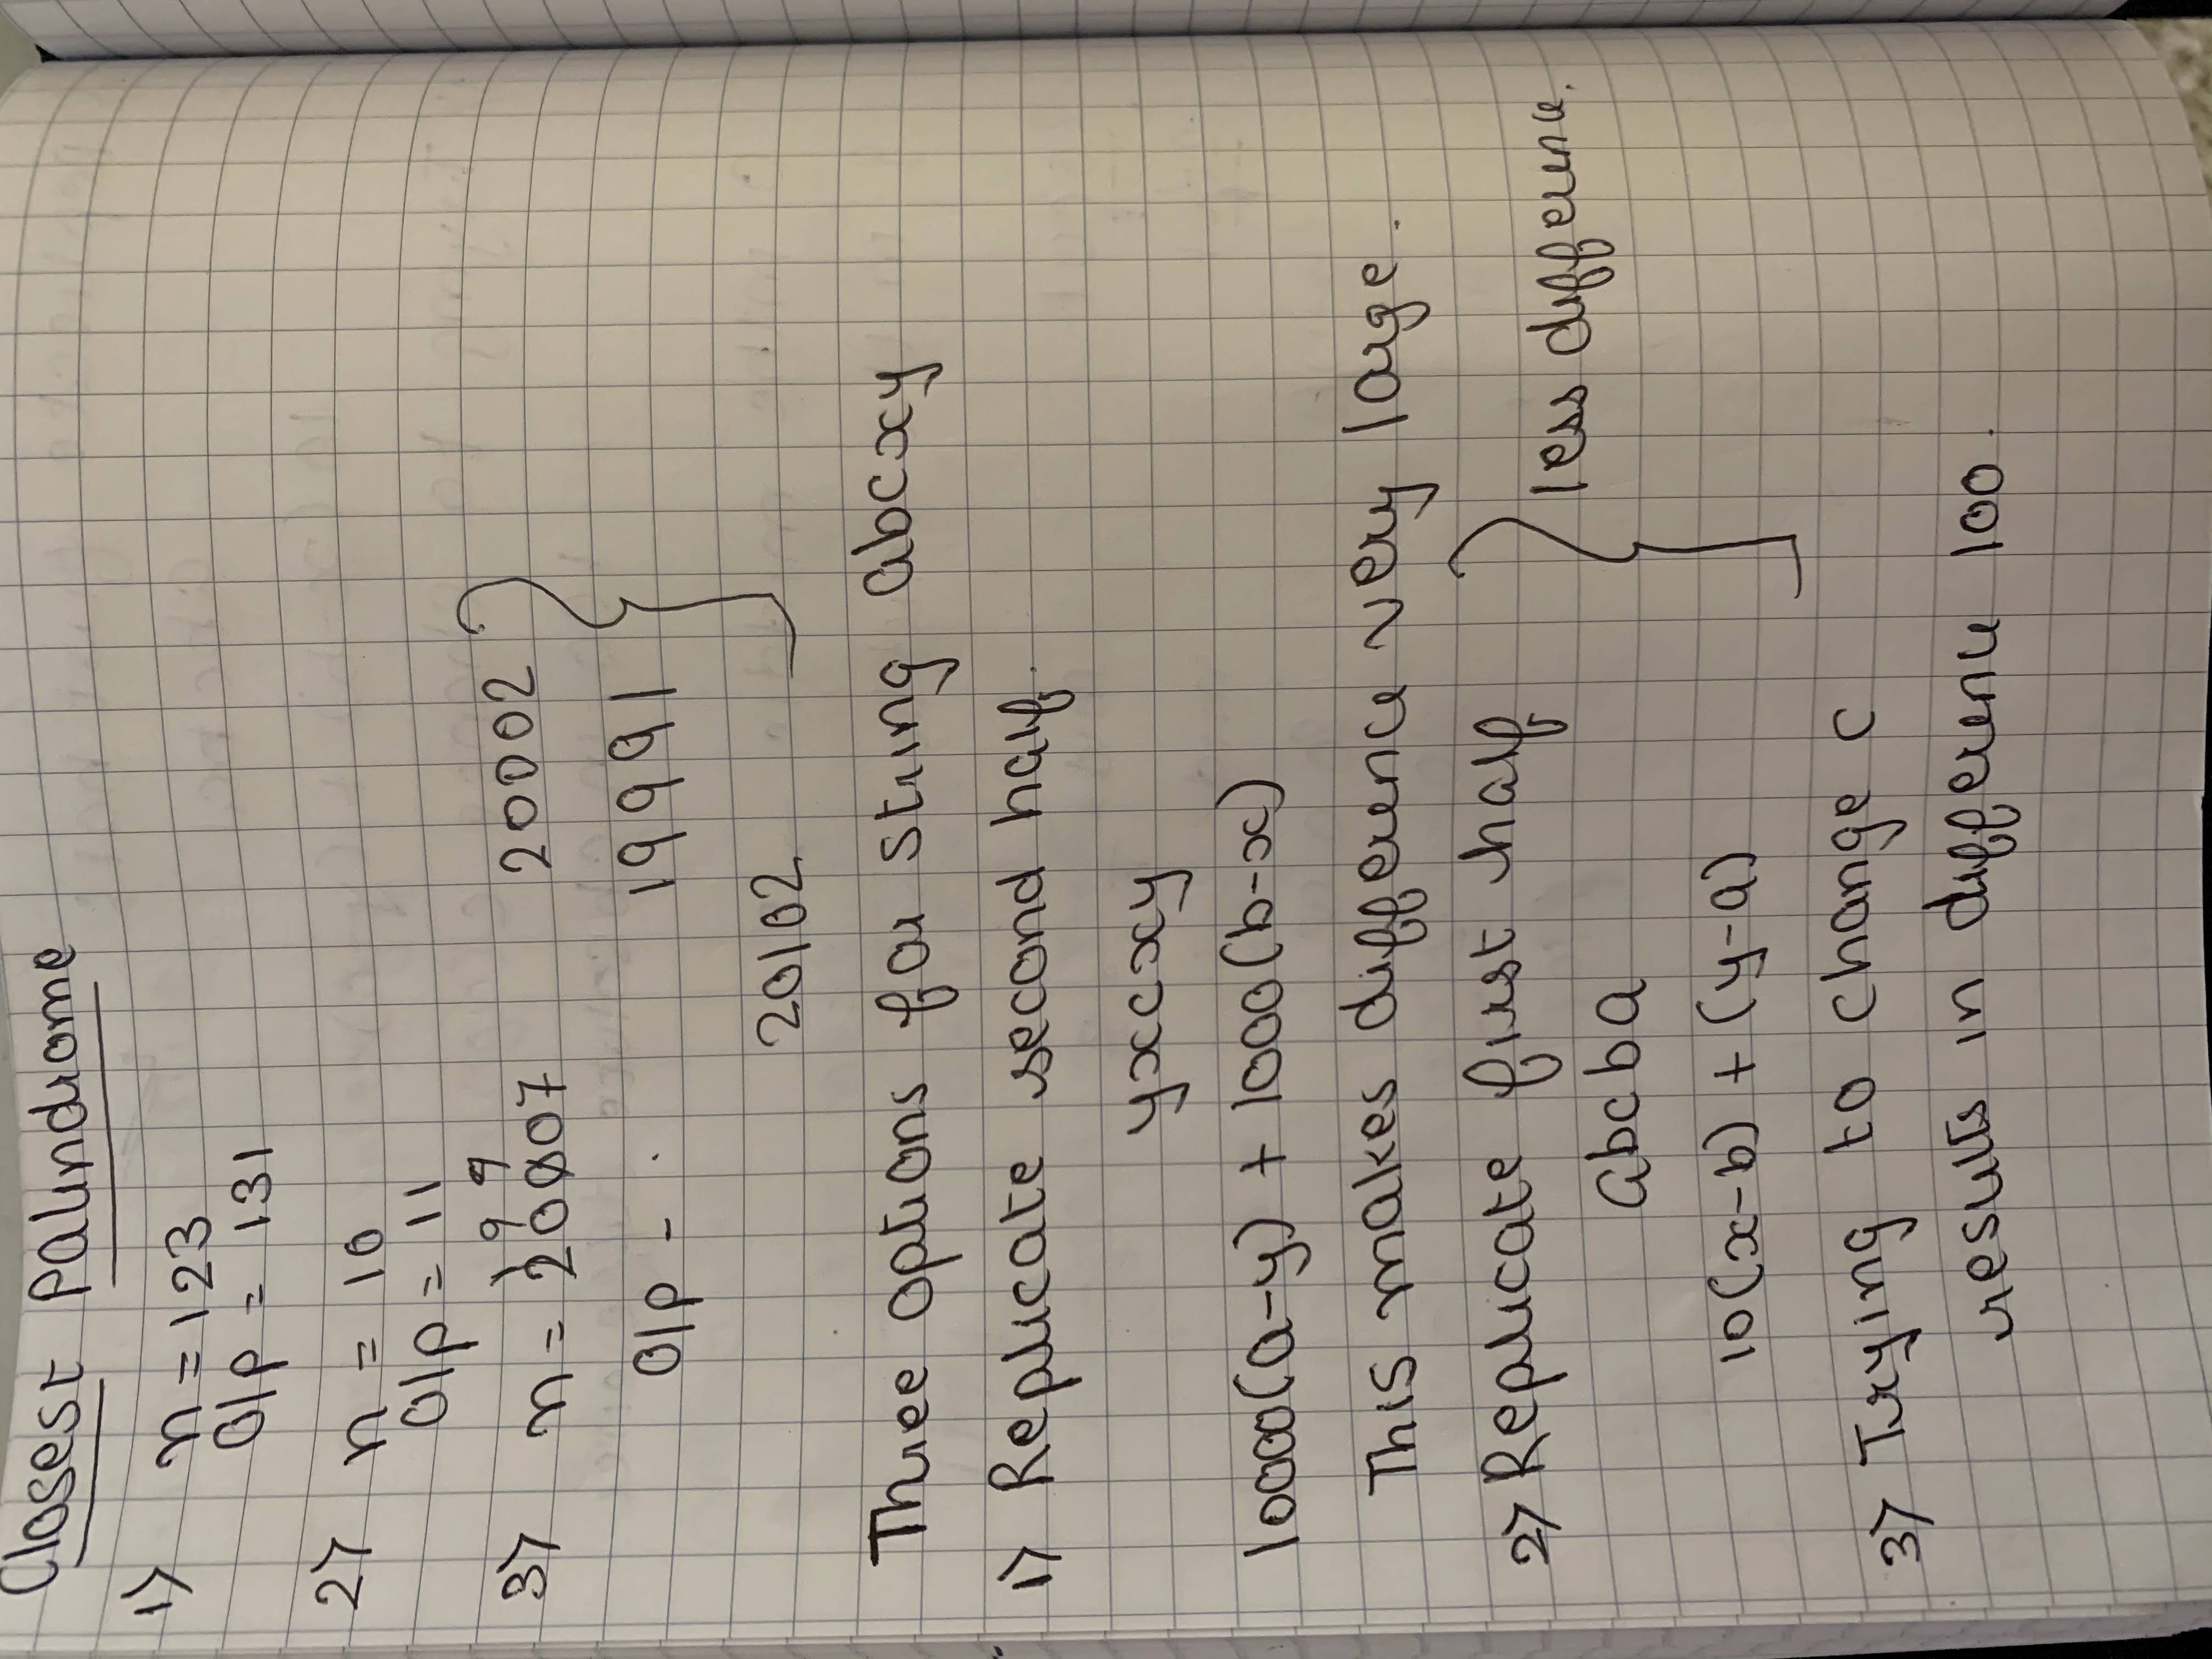 Closest Palindrome
1) n = 123
O/p = 131
2) n = 10
O/p = 11
1 9 9
3) n = 20007 20002
O/p - . 19991
20102
Three options for string abcxy
1) Replicate second half.
yxcxy
10000(a-y) + 1000(b-x)
This makes difference very large.
2) Replicate first half
abcba
less difference.
10(x-b) + (y-a)
3) Trying to change c
results in difference 100.